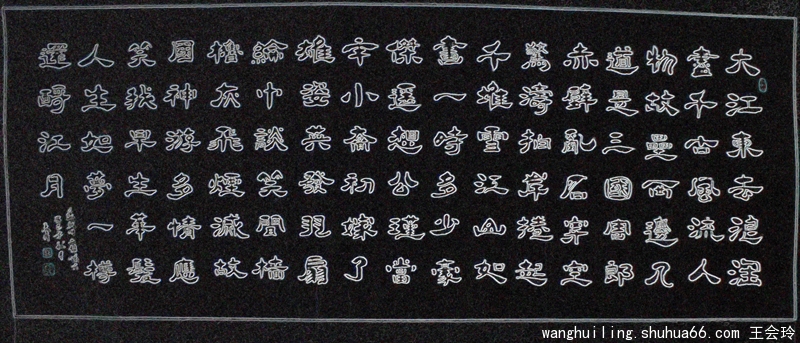 大江東去浪淘
盡千古風流人
物故壘西邊人
道是三國周郎
赤壁亂石穿空
驚濤拍岸捲起
千堆雪江山如
畫一時多少豪
傑遥想公瑾當
年小喬初嫁了
雄姿英發羽扇
綸巾談笑間檣
櫓灰飛煙滅故
國神游多情應
笑我早生華髮
人生如夢一樽
還酹江月
wanghuiling.shuhua66.com 王会玲